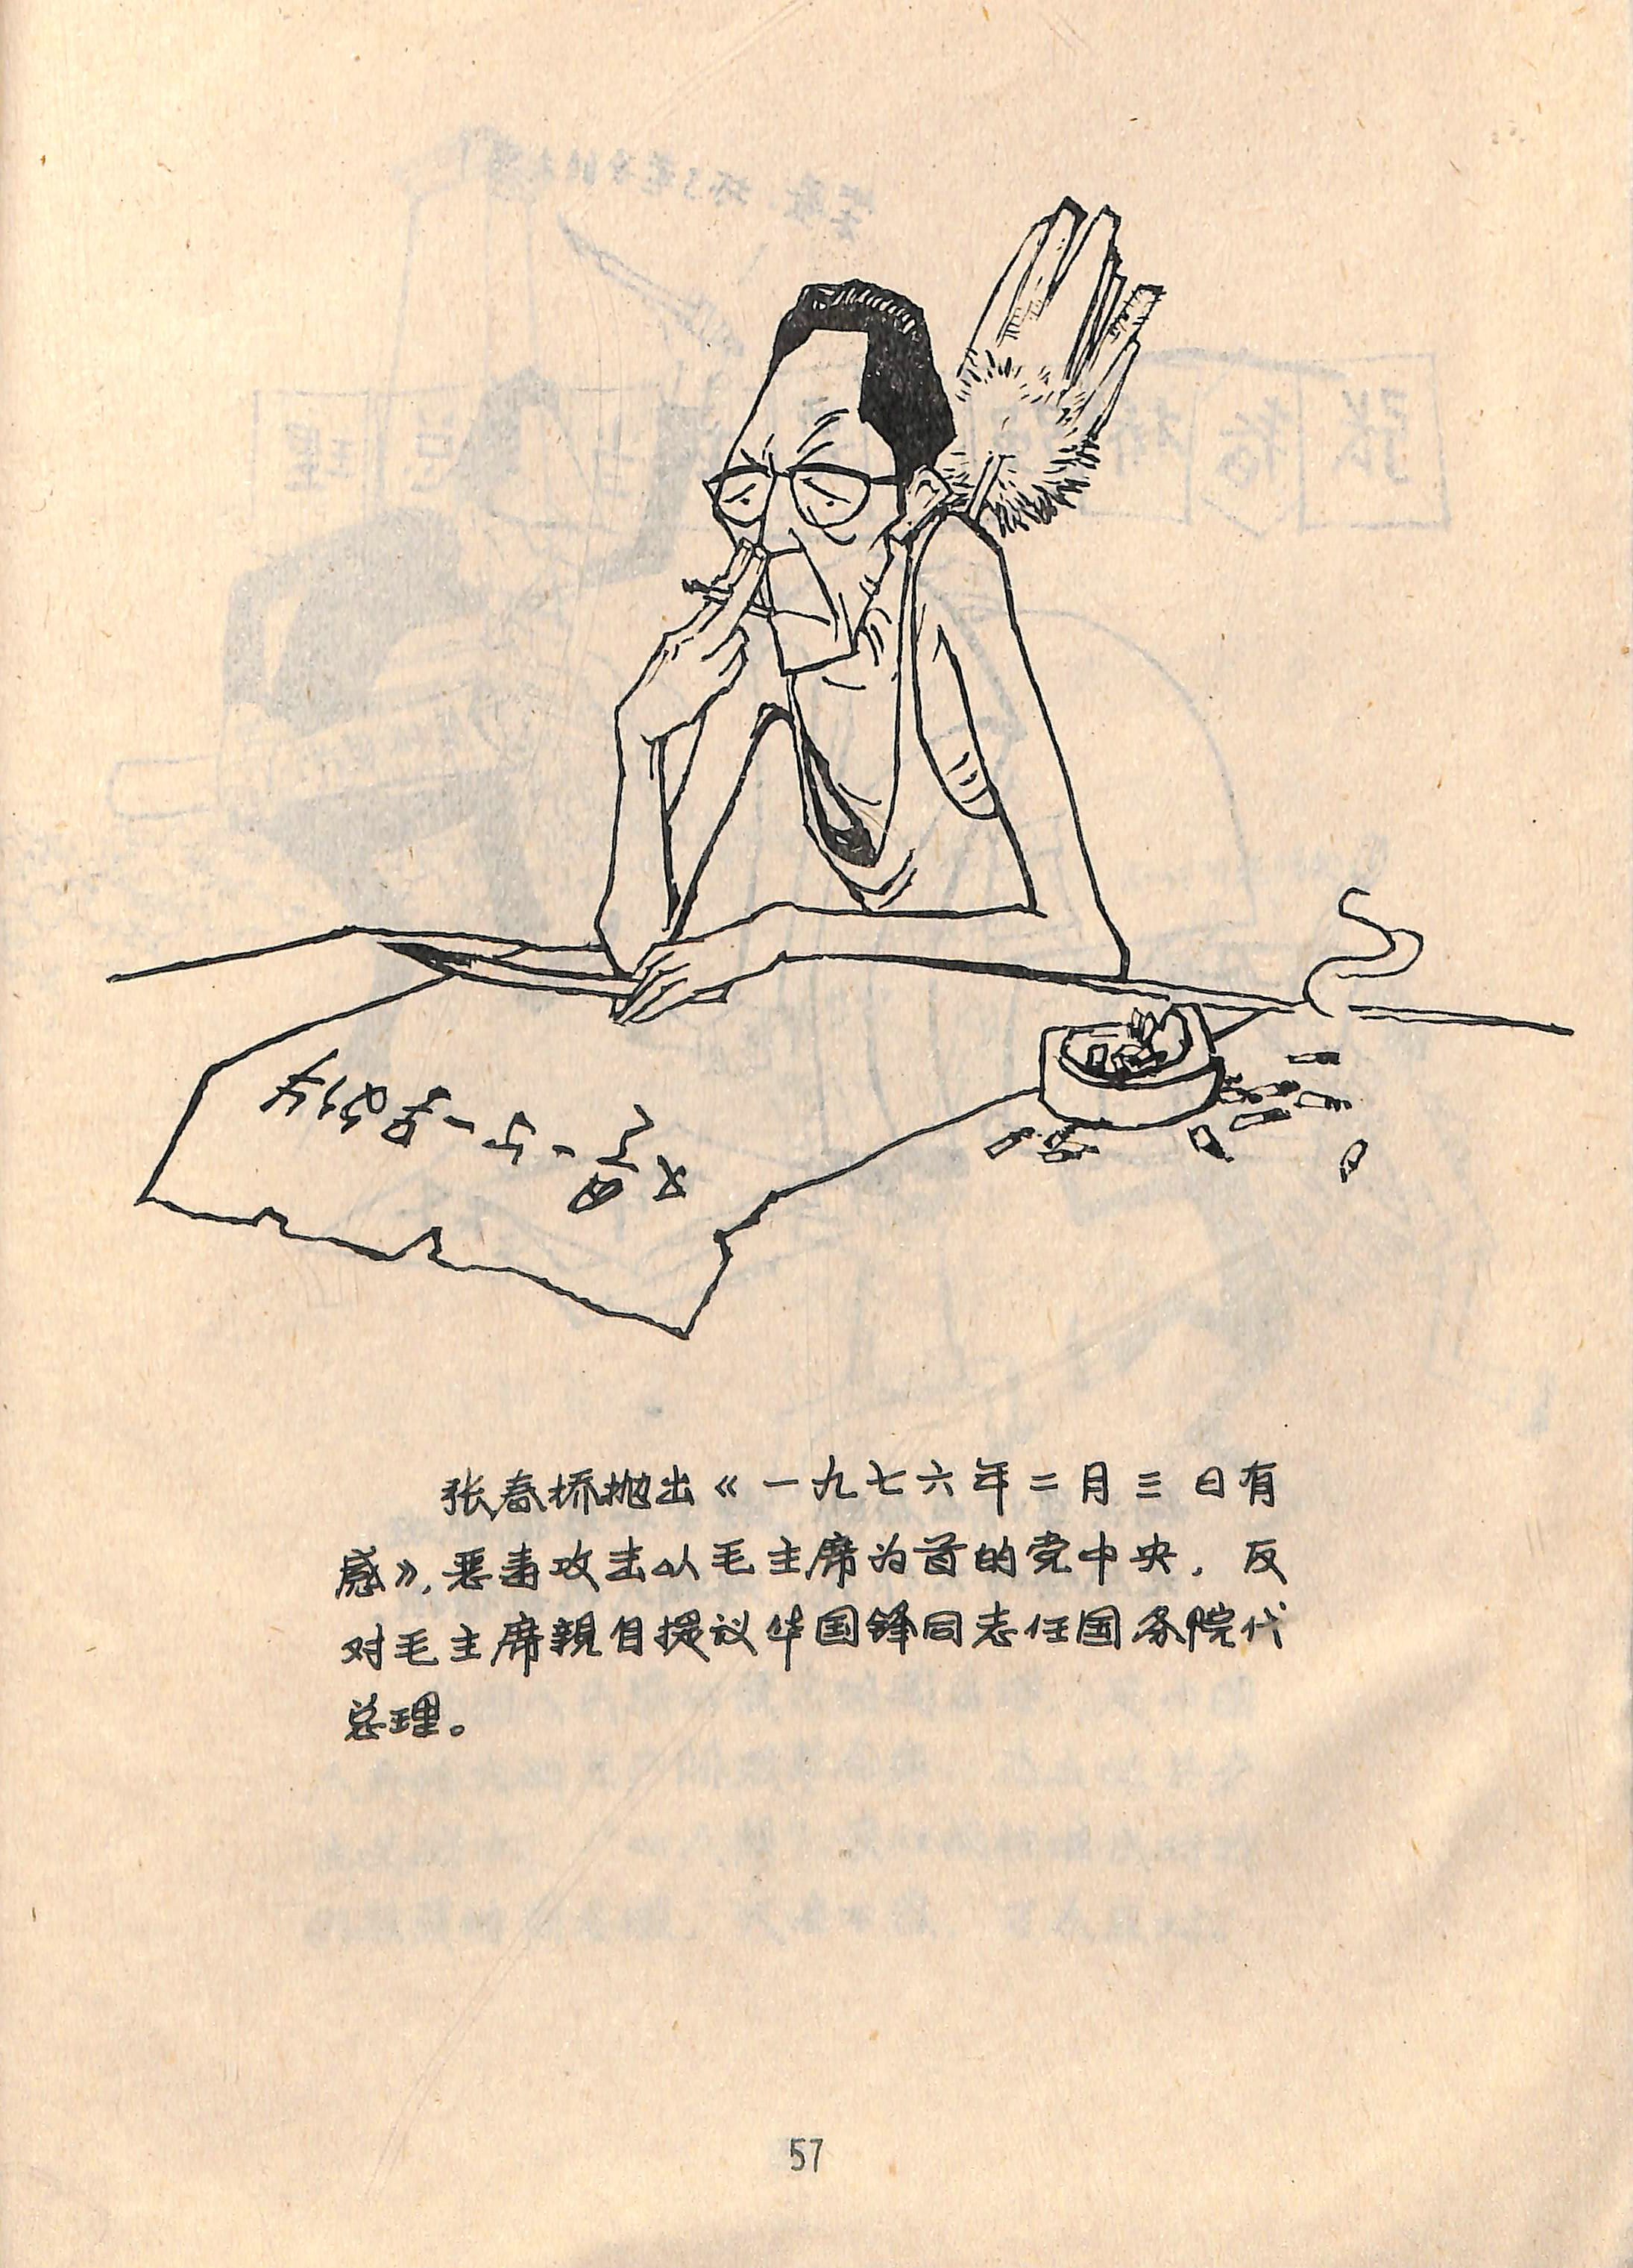 张春桥抛出《一九七六年二月三日有
感》，恶毒攻击以毛主席为首的党中央，反
对毛主席親自提议华国锋同志任国务院代
总理。
57